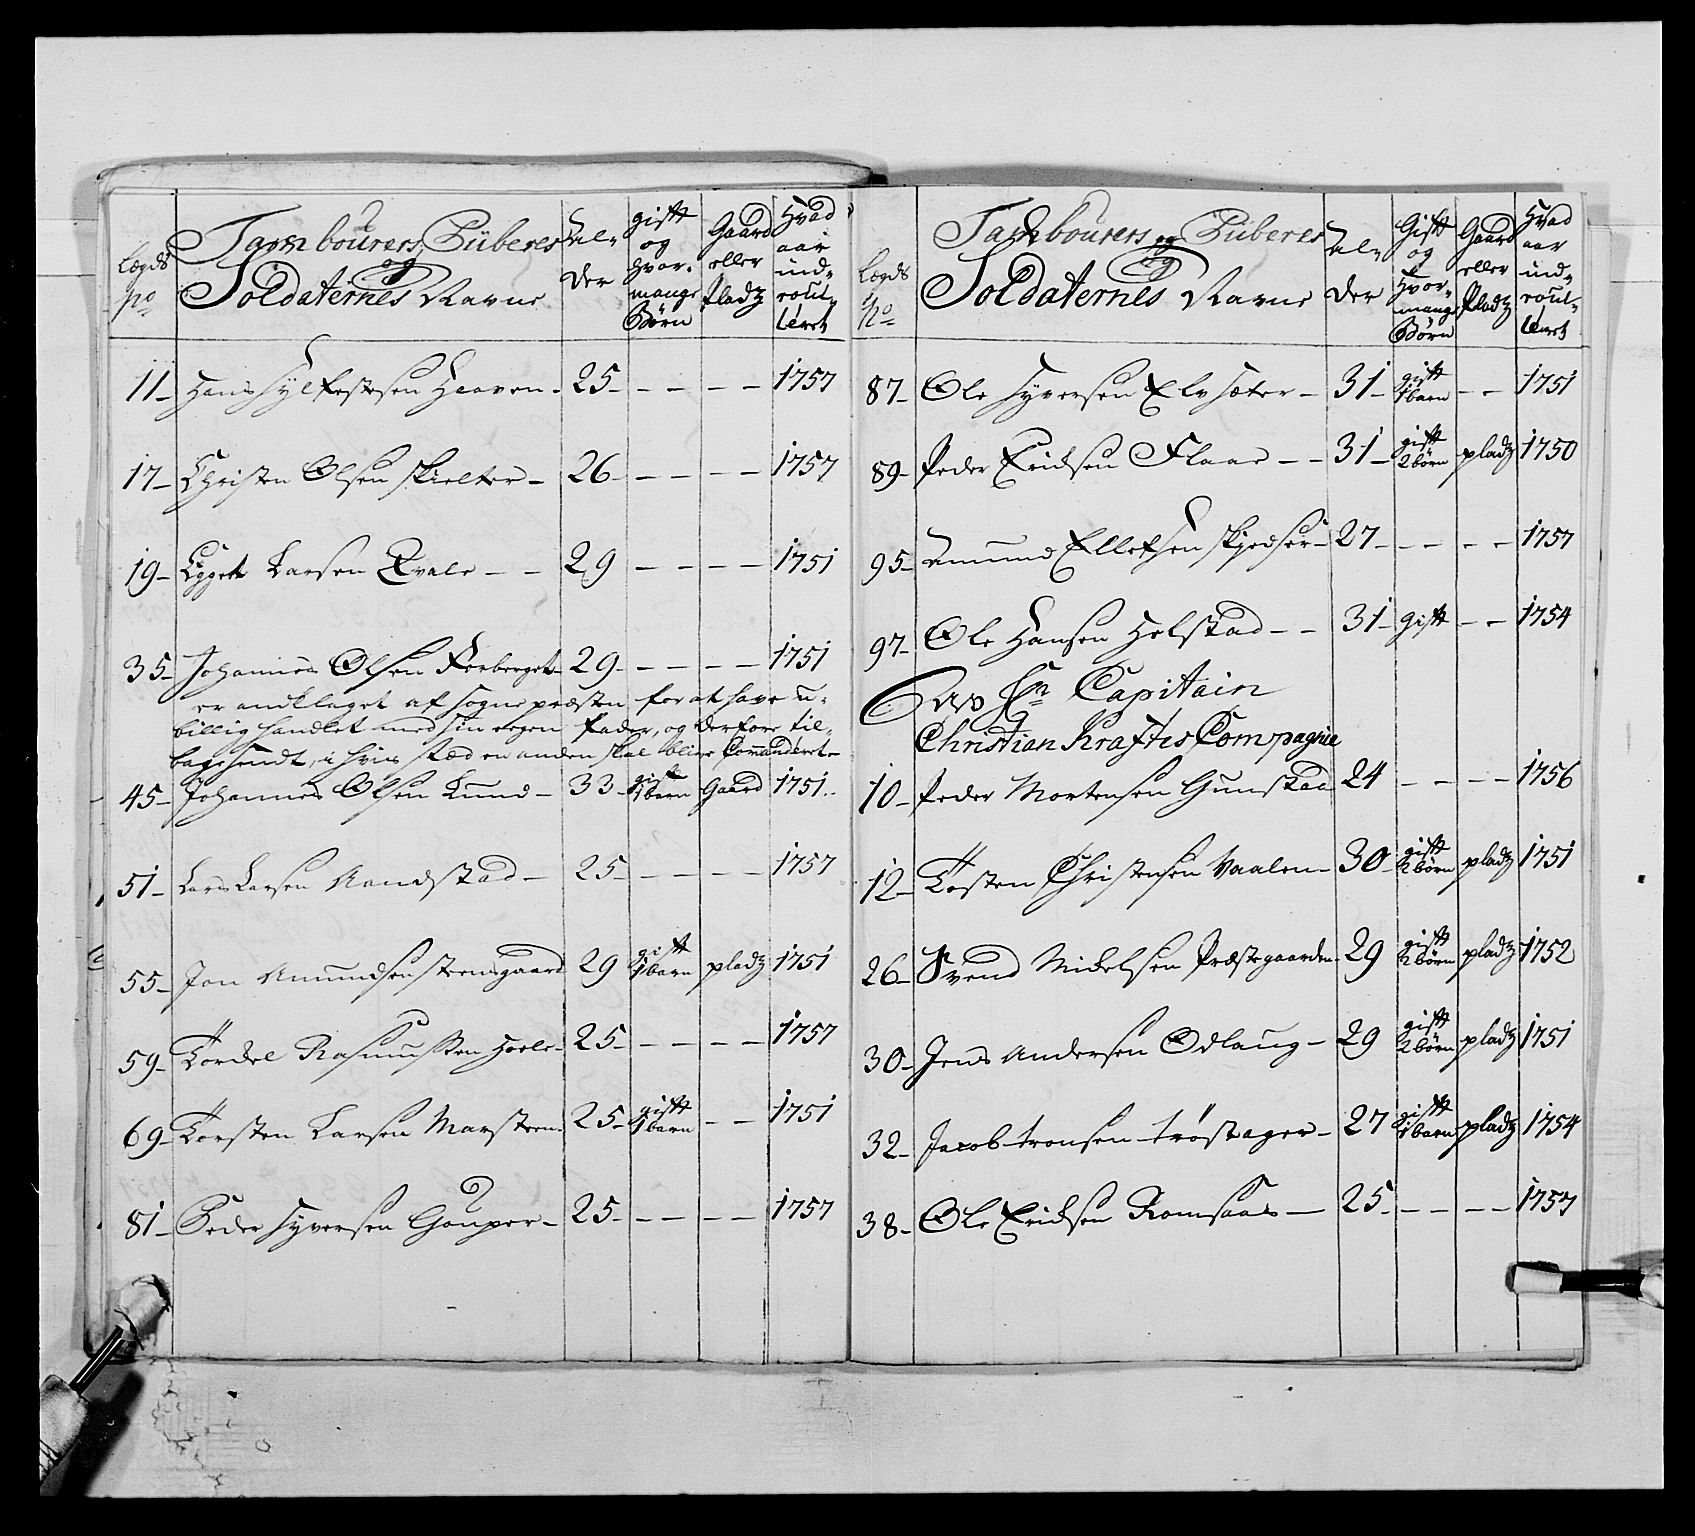 Lægds No
Tambourers, Piiberes
og
Soldaternes Navne
Al-
der
gift
og
hvor-
mange
Børn
Gaard
eller
Pladz
Hvad
aar
ind-
roul-
leret
11 Hans Sylfestesen Haaven 25 - - - - 1757
17 Christen Olsen Skielter 26 - - - - 1757
19 Larsen Qvale 29 - - - - 1751
35 Johannes Olsen Forberget 29 - - - - 1751
er anklaget af Sognepræsten for at have u-
billig handlet med sin egen Fader, og derfore til-
bagesendt, i hvis stæd en anden skal blive Commanderet
45 Johannes Olsen Lund 33 gift 1 barn Gaard 1751
51 Lars Larsen Aandstad 25 - - - - 1757
55 Jon Amundsen Steensgaard 29 gift 1 barn pladz 1751
59 Tordel Rasmussen Hoele 25 - - - - 1757
69 Torsten Larsen Marsteen 25 gift 1 barn - - 1751
81 Peder Syversen Gouper 25 - - - - 1757
Lægds No
Tambourers og Piiberes
og
Soldaternes Navne
Al-
der
Gift
og
Hvor-
mange
Børn
Gaard
eller
Pladz
Hvad
aar
ind-
roul-
leret
87 Ole Syversen Elvsæter 31 gift 1 barn - - 1751
89 Peder Erichsen Flaae 31 gift 2 børn pladz 1750
95 Amund Ellefsen Skjedsør 27 - - - - 1757
97 Ole Hansen Holstad 31 gift - - 1754
Hr Capitain
Christian Krafts Compagnie
10 Peder Mortensen Gunstad 24 - - - - 1756
12 Tosten Christensen Vaalen 30 gift 2 børn pladz 1751
26 Svend Nickelsen Præstegaarden 29 gift 2 børn pladz 1752
30 Jens Andersen Odlaug 29 gift 2 børn pladz 1751
32 Jacob tronsen trøstager 27 gift 1 barn pladz 1754
38 Ole Erichsen Romsaas 25 - - - - 1757